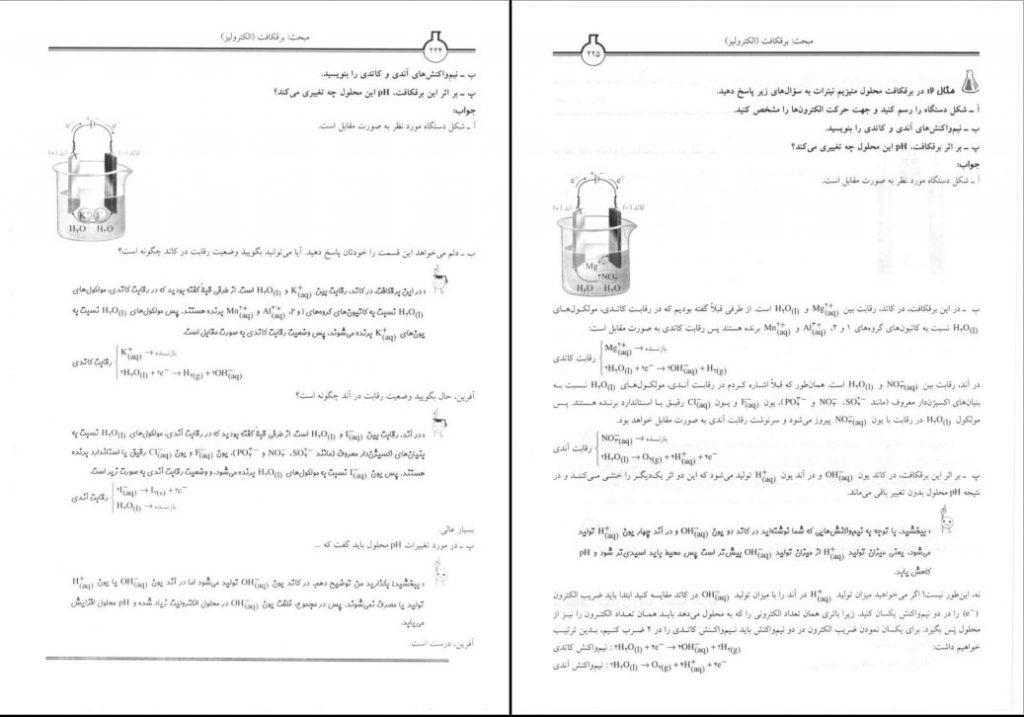 مبحث: برقکافت (الکترولیز)
۲۲۵
مثال ۲: در برقکافت محلول منیزیم نیترات به سؤال‌های زیر پاسخ دهید.
آ ـ شکل دستگاه را رسم کنید و جهت حرکت الکترون‌ها را مشخص کنید.
ب ـ نیم‌واکنش‌های آندی و کاتدی را بنویسید.
پ ـ بر اثر برقکافت، pH این محلول چه تغییری می‌کند؟
جواب:
آ ـ شکل دستگاه مورد نظر به صورت مقابل است.
e⁻ e⁻
کاتد (-) آند (+)
Mg²⁺
۲NO₃⁻
H₂O H₂O
ب ـ در این برقکافت، در کاتد، رقابت بین Mg²⁺(aq) و H₂O(l) است. از طرفی قبلاً گفته بودیم که در رقابت کاتدی، مولکول‌های
H₂O(l) نسبت به کاتیون‌های گروه‌های ۱ و ۲، Al³⁺(aq) و Mn²⁺(aq) برنده هستند پس رقابت کاتدی به صورت مقابل است:
Mg²⁺(aq) → بازنده
رقابت کاتدی
۲H₂O(l) + ۲e⁻ → ۲OH⁻(aq) + H₂(g)
در آند، رقابت بین NO₃⁻(aq) و H₂O(l) است. همان‌طور که قبلاً اشاره کردم در رقابت آندی، مولکول‌های H₂O(l) نسبت به
بنیان‌های اکسیژن‌دار معروف (مانند SO₄²⁻، NO₃⁻ و PO₄³⁻)، یون F⁻(aq) و یون Cl⁻(aq) رقیق یا استاندارد برنده هستند. پس
مولکول H₂O(l) در رقابت با یون NO₃⁻(aq) پیروز می‌شود و سرنوشت رقابت آندی به صورت مقابل خواهد بود.
NO₃⁻(aq) → بازنده
رقابت آندی
۲H₂O(l) → O₂(g) + ۴H⁺(aq) + ۴e⁻
پ ـ بر اثر این برقکافت، در کاتد یون OH⁻(aq) و در آند یون H⁺(aq) تولید می‌شود که این دو اثر یکدیگر را خنثی می‌کنند و در
نتیجه pH محلول بدون تغییر باقی می‌ماند.
ببخشید، با توجه به نیم‌واکنش‌هایی که شما نوشته‌اید در کاتد دو یون OH⁻(aq) و در آند چهار یون H⁺(aq) تولید
می‌شود، یعنی میزان تولید H⁺(aq) از میزان تولید OH⁻(aq) بیش‌تر است پس محیط باید اسیدی‌تر شود و pH
کاهش یابد.
نه، این‌طور نیست! اگر می‌خواهید میزان تولید H⁺(aq) در آند را با میزان تولید OH⁻(aq) در کاتد مقایسه کنید ابتدا باید ضریب الکترون
(e⁻) را در دو نیم‌واکنش یکسان کنید. زیرا باتری همان تعداد الکترونی را که به محلول می‌دهد باید همان تعداد الکترون را نیز از
محلول پس بگیرد. برای یکسان نمودن ضریب الکترون در دو نیم‌واکنش باید نیم‌واکنش کاتدی را در ۲ ضرب کنیم، بدین ترتیب
خواهیم داشت:
نیم‌واکنش کاتدی : ۴H₂O(l) + ۴e⁻ → ۴OH⁻(aq) + ۲H₂(g)
نیم‌واکنش آندی : ۲H₂O(l) → O₂(g) + ۴H⁺(aq) + ۴e⁻
مبحث: برقکافت (الکترولیز)
۲۲۴
ب ـ نیم‌واکنش‌های آندی و کاتدی را بنویسید.
پ ـ بر اثر این برقکافت، pH این محلول چه تغییری می‌کند؟
جواب:
آ ـ شکل دستگاه مورد نظر به صورت مقابل است.
e⁻ e⁻
کاتد (-) آند (+)
K⁺ I⁻
H₂O H₂O
ب ـ دلم می‌خواهد این قسمت را خودتان پاسخ دهید. آیا می‌توانید بگویید وضعیت رقابت در کاتد چگونه است؟
در این برقکافت، در کاتد، رقابت بین K⁺(aq) و H₂O(l) است. از طرفی قبلاً گفته بودید که در رقابت کاتدی، مولکول‌های
H₂O(l) نسبت به کاتیون‌های گروه‌های ۱ و ۲، Al³⁺(aq) و Mn²⁺(aq) برنده هستند. پس مولکول‌های H₂O(l) نسبت به
یون‌های K⁺(aq) برنده می‌شوند، پس وضعیت رقابت کاتدی به صورت مقابل است.
K⁺(aq) → بازنده
رقابت کاتدی
۲H₂O(l) + ۲e⁻ → H₂(g) + ۲OH⁻(aq)
آفرین، حال بگویید وضعیت رقابت در آند چگونه است؟
در آند، رقابت بین I⁻(aq) و H₂O(l) است. از طرفی قبلاً گفته بودید که در رقابت آندی، مولکول‌های H₂O(l) نسبت به
بنیان‌های اکسیژن‌دار معروف (مانند SO₄²⁻، NO₃⁻ و PO₄³⁻)، یون F⁻(aq) و یون Cl⁻(aq) رقیق یا استاندارد برنده
هستند. پس یون I⁻(aq) نسبت به مولکول‌های H₂O(l) برنده می‌شود، و وضعیت رقابت آندی به صورت زیر است.
۲I⁻(aq) → I₂(s) + ۲e⁻
رقابت آندی
H₂O(l) → بازنده
بسیار عالی.
پ ـ در مورد تغییرات pH محلول باید گفت که ...
ببخشید! بگذارید من توضیح دهم. در کاتد یون OH⁻(aq) تولید می‌شود اما در آند یون OH⁻(aq) یا یون H⁺(aq)
تولید یا مصرف نمی‌شوند. پس در مجموع، غلظت یون OH⁻(aq) در محلول الکترولیت زیاد شده و pH محلول افزایش
می‌یابد.
آفرین، درست است.